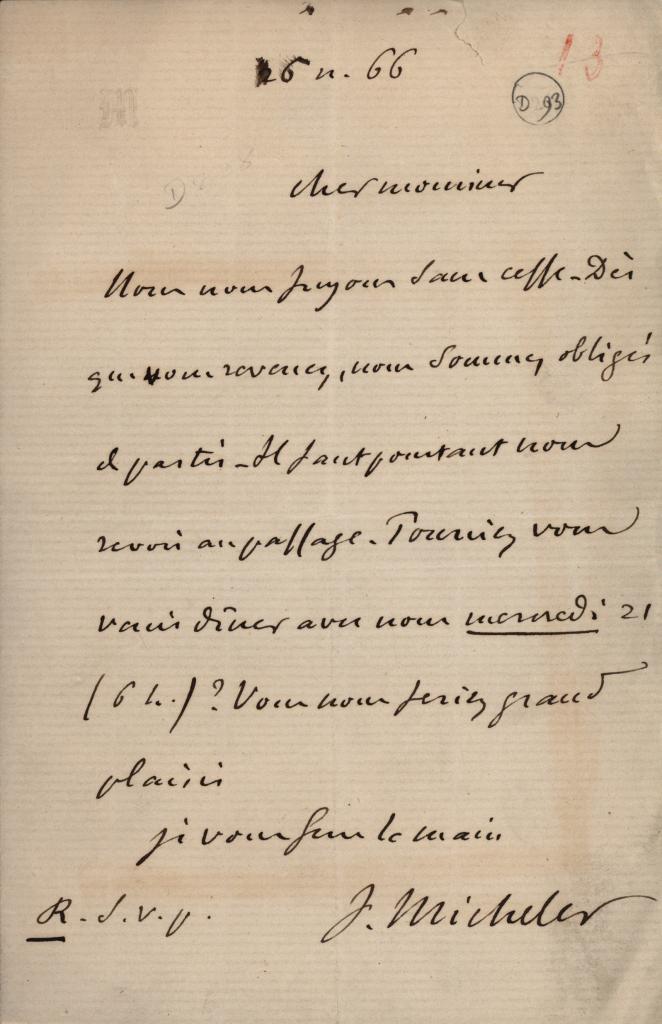 26 n. 66
13
D 293
cher monsieur
Nous nous fuyons sans cesse - Dès
que vous revenez, nous sommes obligés
de partir - Il faut pourtant nous
revoir au passage. Pourriez vous
venir dîner avec nous mercredi 21
(6 h.) ? Vous nous feriez grand
plaisir
je vous serre la main
R. S. v. p.
J. Michelet